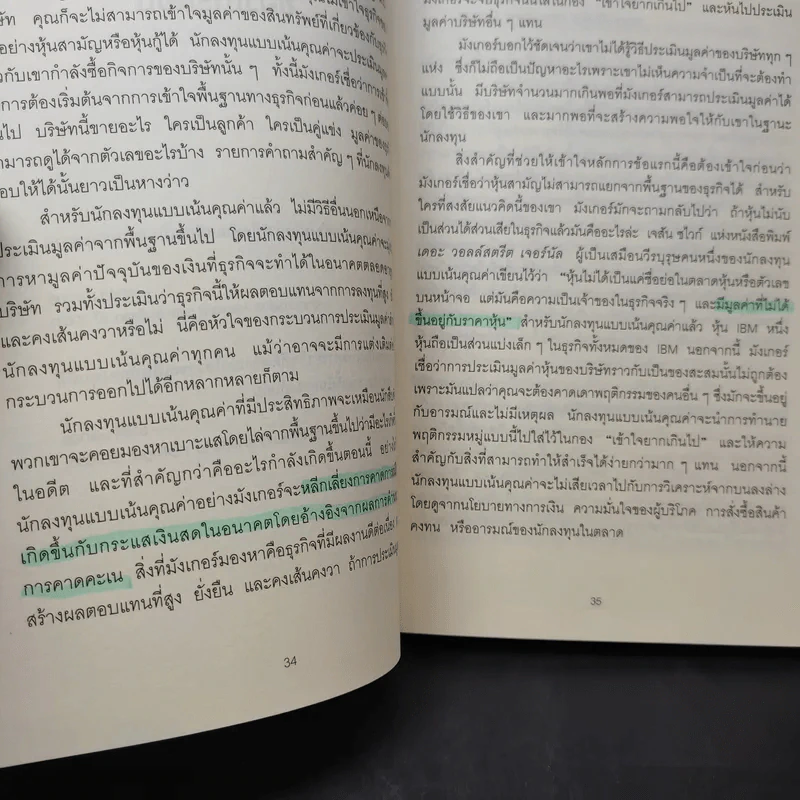 ษัท คุณก็จะไม่สามารถเข้าใจมูลค่าของสินทรัพย์ที่เกี่ยวข้องกับธุรกิจ
อย่างหุ้นสามัญหรือหุ้นกู้ได้ นักลงทุนแบบเน้นคุณค่าจะประเมินมูลค่า
วกับเขากำลังซื้อกิจการของบริษัทนั้น ๆ ทั้งนี้มังเกอร์เชื่อว่าการ
การต้องเริ่มต้นจากการเข้าใจพื้นฐานทางธุรกิจก่อนแล้วค่อย ๆ
นไป บริษัทนี้ขายอะไร ใครเป็นลูกค้า ใครเป็นคู่แข่ง มูลค่าของ
ามารถดูได้จากตัวเลขอะไรบ้าง รายการคำถามสำคัญ ๆ ที่นักลงทุน
อบให้ได้นั้นยาวเป็นหางว่าว
สำหรับนักลงทุนแบบเน้นคุณค่าแล้ว ไม่มีวิธีอื่นนอกเหนือจาก
ประเมินมูลค่าจากพื้นฐานขึ้นไป โดยนักลงทุนแบบเน้นคุณค่าจะ
การหามูลค่าปัจจุบันของเงินที่ธุรกิจจะทำได้ในอนาคตตลอด
บริษัท รวมทั้งประเมินว่าธุรกิจนี้ให้ผลตอบแทนจากการลงทุนที่สูง
และคงเส้นคงวาหรือไม่ นี่คือหัวใจของกระบวนการประเมินมูลค่า
นักลงทุนแบบเน้นคุณค่าทุกคน แม้ว่าอาจจะมีการแต่งเติม
กระบวนการออกไปได้อีกหลากหลายก็ตาม
นักลงทุนแบบเน้นคุณค่าที่มีประสิทธิภาพจะเหมือนนัก
พวกเขาจะคอยมองหาเบาะแสโดยไล่จากพื้นฐานขึ้นไปว่ามีอะไร
ในอดีต และที่สำคัญกว่าคืออะไรกำลังเกิดขึ้นตอนนี้
นักลงทุนแบบเน้นคุณค่าอย่างมังเกอร์จะหลีกเลี่ยงการคาดการณ์
เกิดขึ้นกับกระแสเงินสดในอนาคตโดยอ้างอิงจากผลการ
การคาดคะเน สิ่งที่มังเกอร์มองหาคือธุรกิจที่มีผลงานดีต่อเนื่อง
สร้างผลตอบแทนที่สูง ยั่งยืน และคงเส้นคงวา ถ้าการประเมิน
34
มังเกอร์จะจับธุรกิจนั้นใส่ในกอง "เข้าใจยากเกินไป" และหันไปประเมิน
มูลค่าบริษัทอื่น ๆ แทน
มังเกอร์บอกไว้ชัดเจนว่าเขาไม่ได้รู้วิธีประเมินมูลค่าของบริษัททุก ๆ
แห่ง ซึ่งก็ไม่ถือเป็นปัญหาอะไรเพราะเขาไม่เห็นความจำเป็นที่จะต้องทำ
แบบนั้น มีบริษัทจำนวนมากเกินพอที่มังเกอร์สามารถประเมินมูลค่าได้
โดยใช้วิธีของเขา และมากพอที่จะสร้างความพอใจให้กับเขาในฐานะ
นักลงทุน
สิ่งสำคัญที่ช่วยให้เข้าใจหลักการข้อแรกนี้คือต้องเข้าใจก่อนว่า
มังเกอร์เชื่อว่าหุ้นสามัญไม่สามารถแยกจากพื้นฐานของธุรกิจได้ สำหรับ
ใครที่สงสัยแนวคิดนี้ของเขา มังเกอร์มักจะถามกลับไปว่า ถ้าหุ้นไม่นับ
เป็นส่วนได้ส่วนเสียในธุรกิจแล้วมันคืออะไรล่ะ เจสัน ซไวก์ แห่งหนังสือพิมพ์
เดอะ วอลล์สตรีต เจอร์นัล ผู้เป็นเสมือนวีรบุรุษคนหนึ่งของนักลงทุน
แบบเน้นคุณค่าเขียนไว้ว่า "หุ้นไม่ได้เป็นแค่ชื่อย่อในตลาดหุ้นหรือตัวเลข
บนหน้าจอ แต่มันคือความเป็นเจ้าของในธุรกิจจริง ๆ และมีมูลค่าที่ไม่ได้
ขึ้นอยู่กับราคาหุ้น" สำหรับนักลงทุนแบบเน้นคุณค่าแล้ว หุ้น IBM หนึ่ง
หุ้นถือเป็นส่วนแบ่งเล็ก ๆ ในธุรกิจทั้งหมดของ IBM นอกจากนี้ มังเกอร์
เชื่อว่าการประเมินมูลค่าหุ้นของบริษัทราวกับเป็นของสะสมนั้นไม่ถูกต้อง
เพราะมันแปลว่าคุณจะต้องคาดเดาพฤติกรรมของคนอื่น ๆ ซึ่งมักจะขึ้นอยู่
กับอารมณ์และไม่มีเหตุผล นักลงทุนแบบเน้นคุณค่าจะนำการทำนาย
พฤติกรรมหมู่แบบนี้ไปใส่ไว้ในกอง "เข้าใจยากเกินไป" และให้ความ
สำคัญกับสิ่งที่สามารถทำให้สำเร็จได้ง่ายกว่ามาก ๆ แทน นอกจากนี้
นักลงทุนแบบเน้นคุณค่าจะไม่เสียเวลาไปกับการวิเคราะห์จากบนลงล่าง
โดยดูจากนโยบายทางการเงิน ความมั่นใจของผู้บริโภค การสั่งซื้อสินค้า
คงทน หรืออารมณ์ของนักลงทุนในตลาด
35